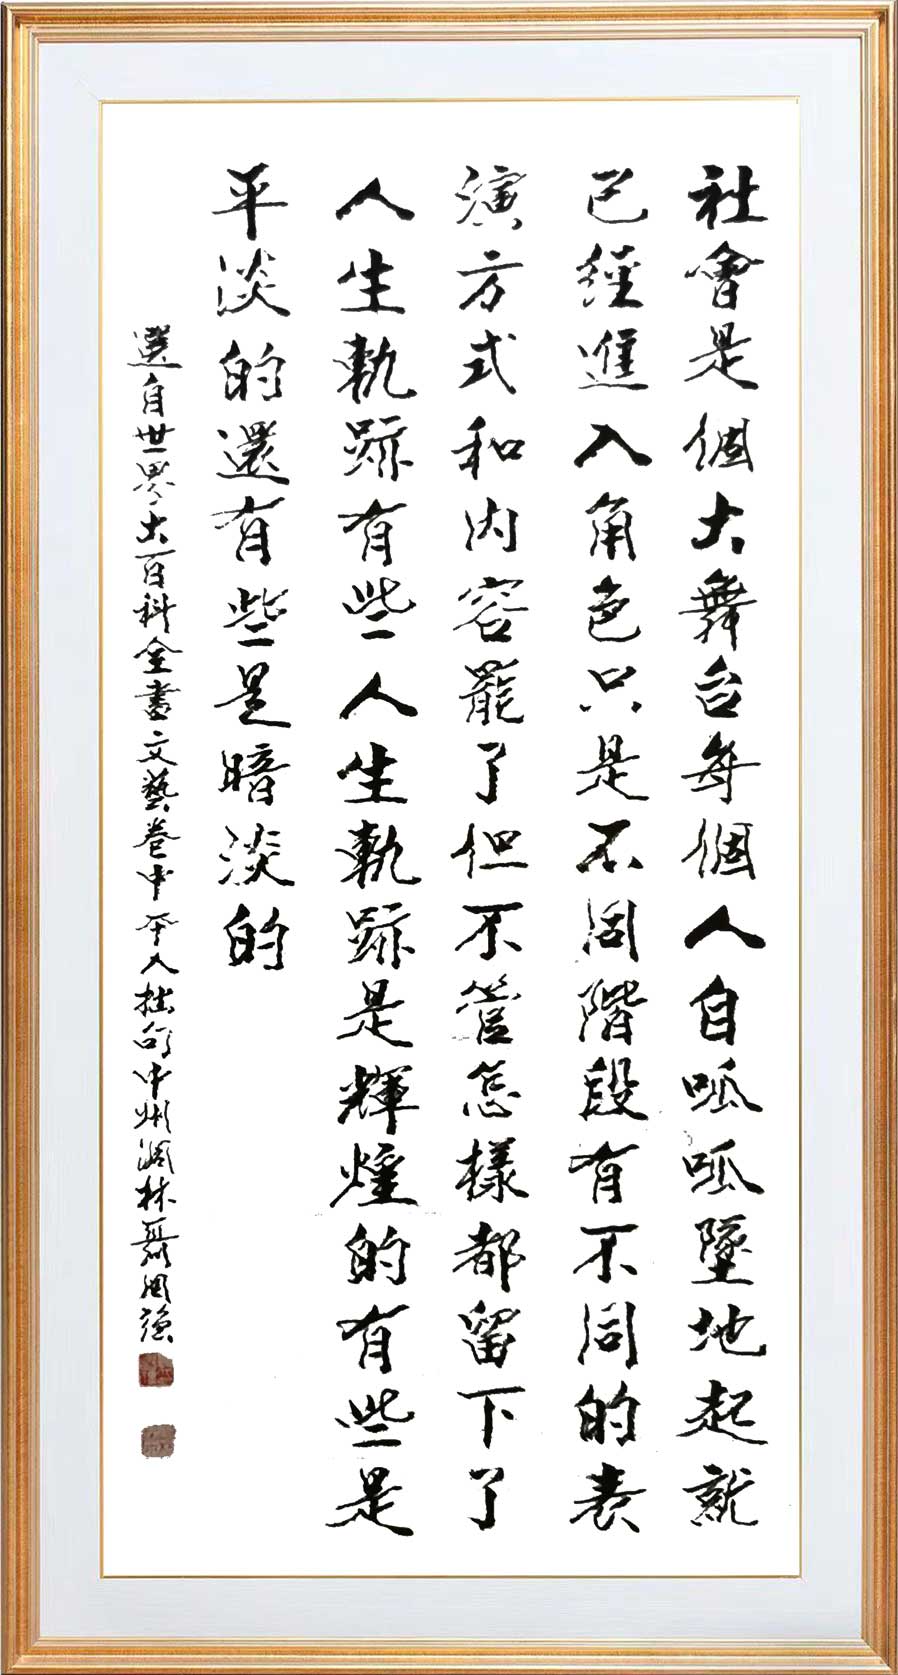 社會是個大舞台每個人自呱呱墜地起就
已經進入角色只是不同階段有不同的表
演方式和内容罷了但不管怎樣都留下了
人生軌跡有些人生軌跡是輝煌的有些是
平淡的還有些是暗淡的
選自世界大百科全書文藝卷中本人拙句中州林聶周強